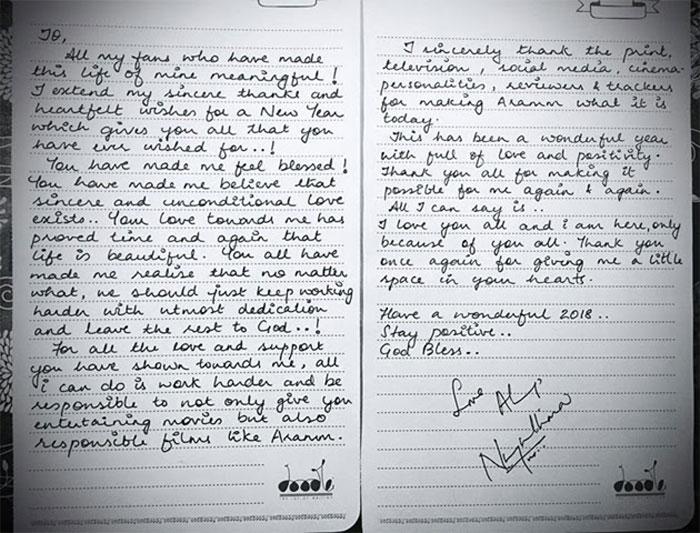 To,
All my fans who have made
this life of mine meaningful!
I extend my sincere thanks and
heartfelt wishes for a New Year
which gives you all that you
have ever wished for..!
You have made me feel blessed!
You have made me believe that
sincere and unconditional love
exists.. Your love towards me has
proved time and again that
life is beautiful. You all have
made me realise that no matter
what, we should just keep working
harder with utmost dedication
and leave the rest to God..!
For all the love and support
you have shown towards me, all
i can do is work harder and be
responsible to not only give you
entertaining movies but also
responsible films like Aramm.
doodle
I sincerely thank the print,
television, social media, cinema-
personalities, reviewers & trackers
for making Aramm what it is
today.
This has been a wonderful year
with full of love and positivity.
Thank you all for making it
possible for me again & again.
All I can say is..
I love you all and i am here, only
because of you all. Thank you
once again for giving me a little
space in your hearts.
Have a wonderful 2018..
Stay positive..
God Bless..
Love Always
Nayanthara
doodle